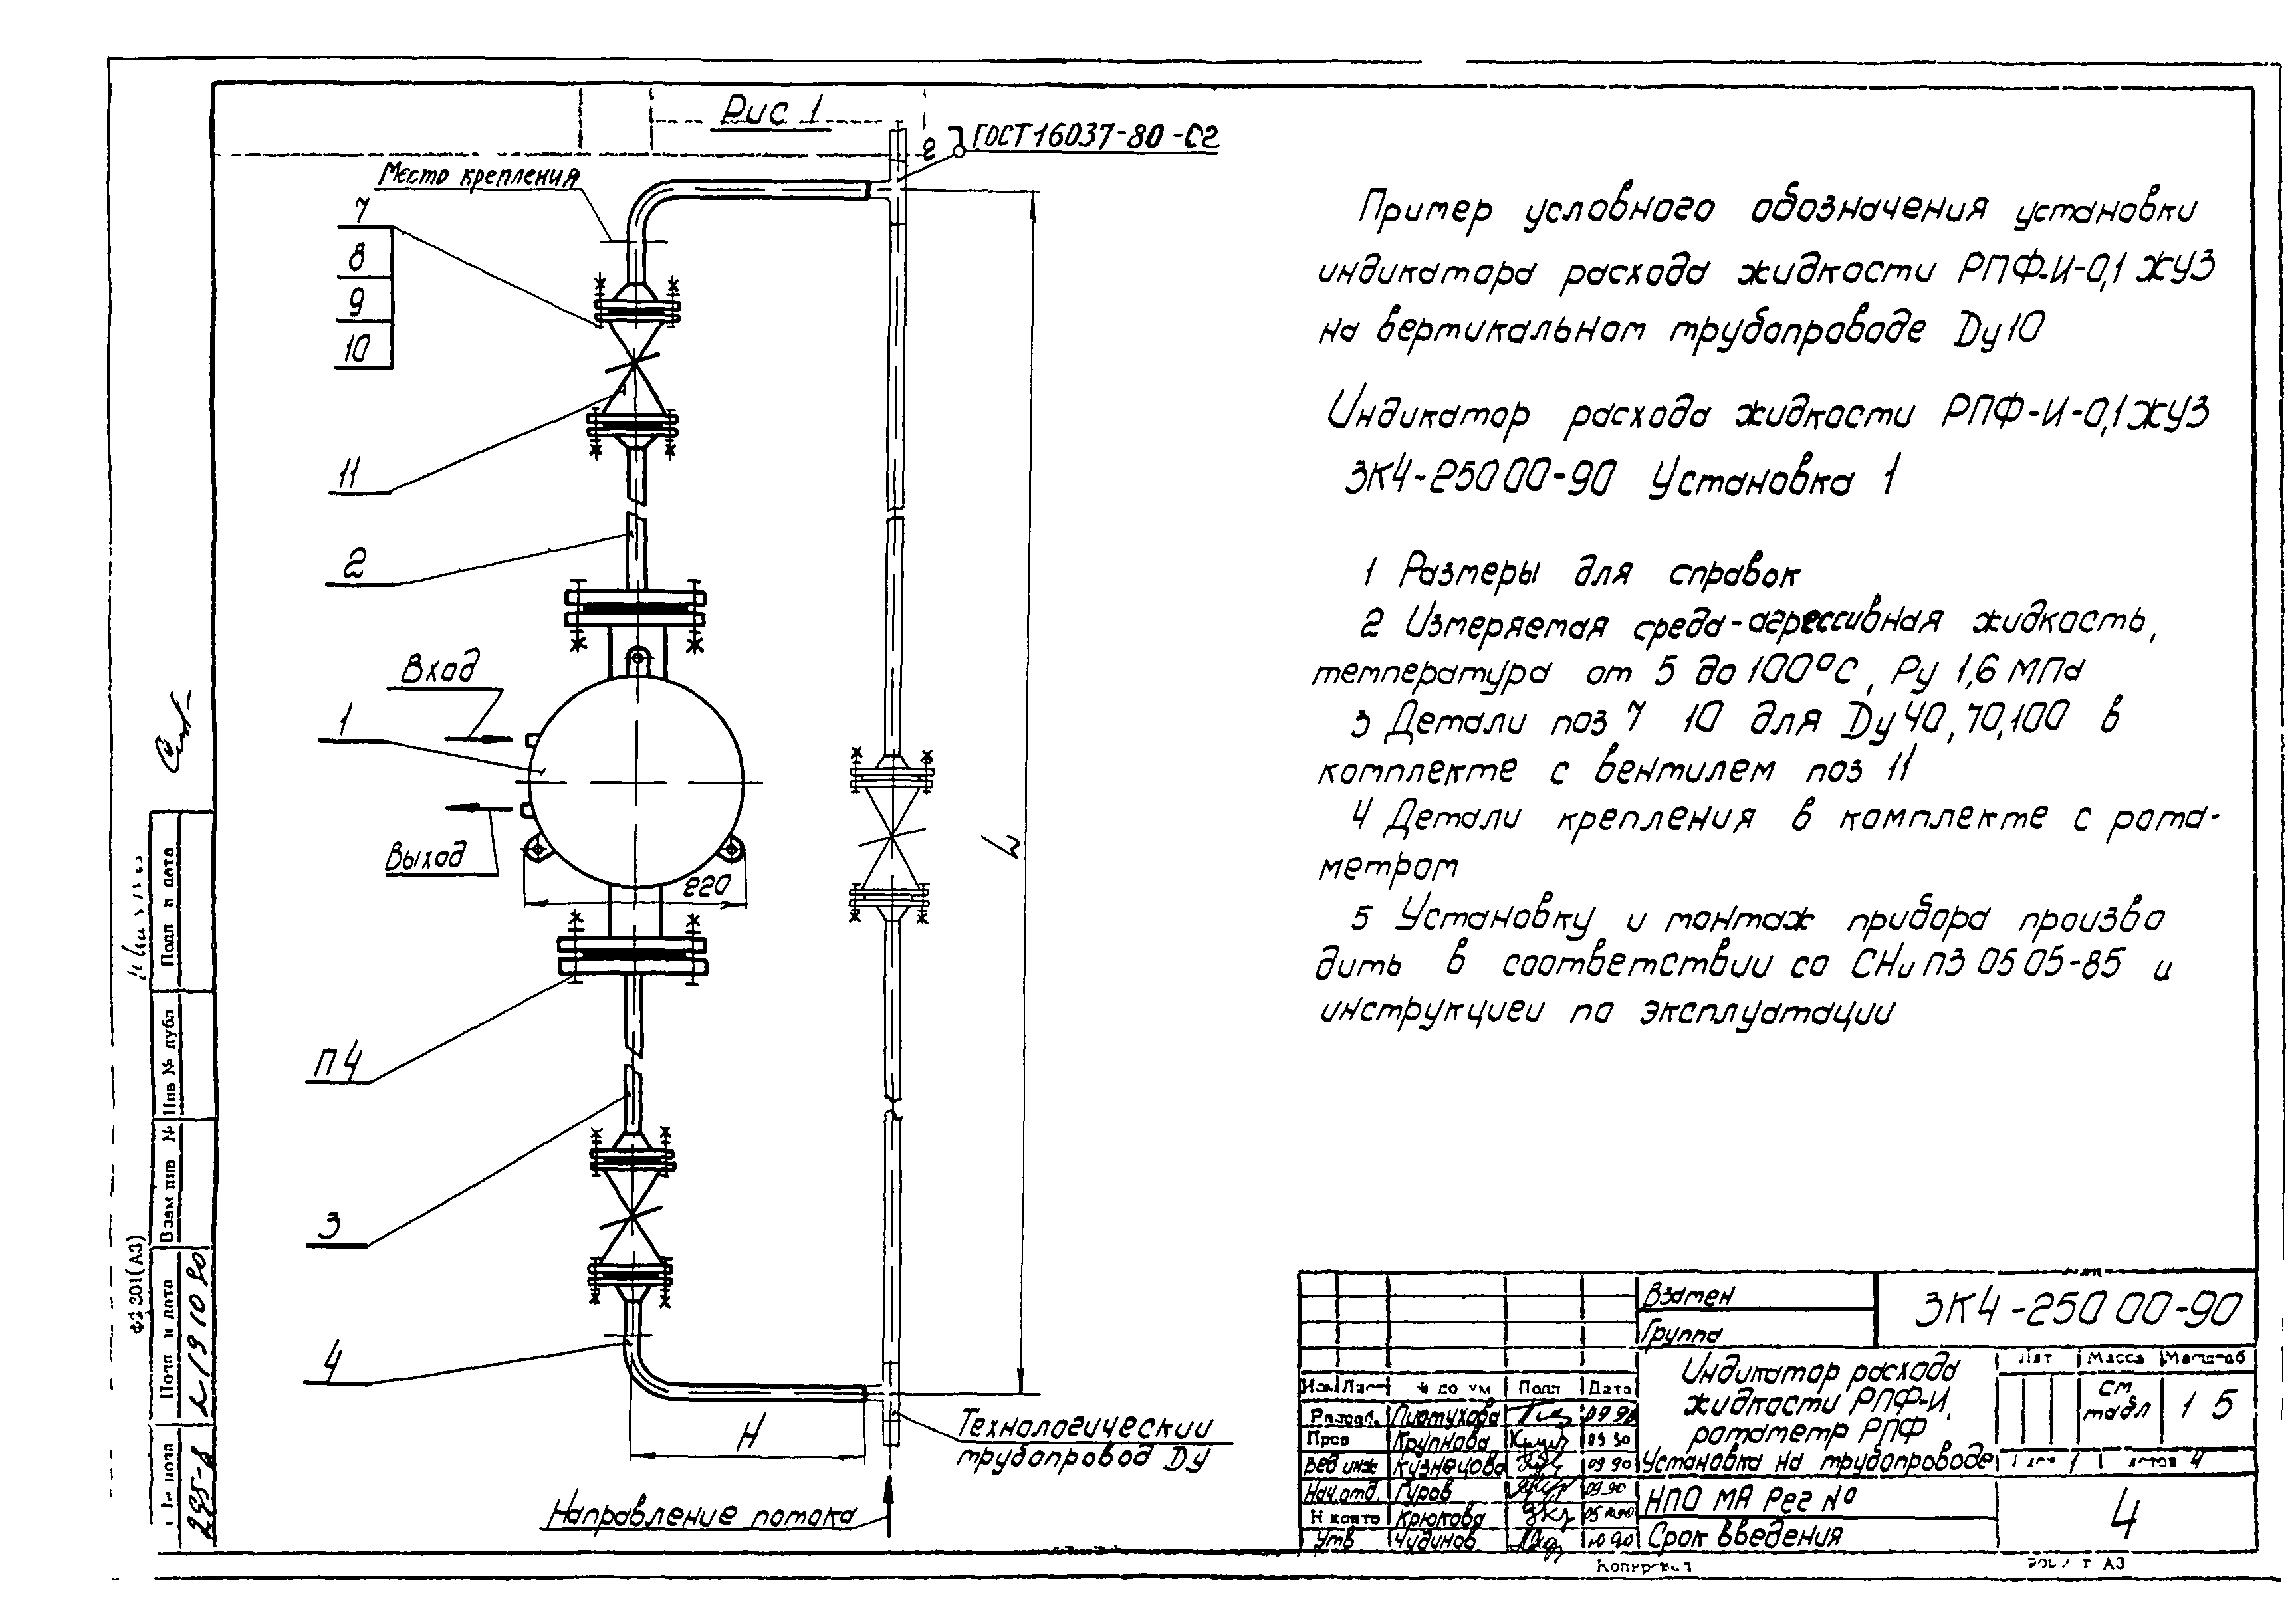 Рис 1
ГОСТ 16037-80-С2
Место крепления
7
8
9
10
11
2
Вход
1
Выход
220
П4
3
4
H
Технологический
трубопровод Dy
Направление потока
Пример условного обозначения установки
индикатора расхода жидкости РПФ-И-0,1 ЖУЗ
на вертикальном трубопроводе Dy10
Индикатор расхода жидкости РПФ-И-0,1 ЖУЗ
ЗК4-25000-90 Установка 1
1 Размеры для справок
2 Измеряемая среда-агрессивная жидкость,
температура от 5 до 100°С, Ру 1,6 МПа
3 Детали поз 7 10 для Dy 40,70,100 в
комплекте с вентилем поз 11
4 Детали крепления в комплекте с рота-
метром
5 Установку и монтаж прибора произво
дить в соответствии со СНиП3 05 05-85 и
инструкцией по эксплуатации
Взамен
Группа
ЗК4-250 00-90
Индикатор расхода
жидкости РПФ-И,
ротаметр РПФ
Установка на трубопроводе
Лит Масса Масштаб
см
табл 1 5
1 4
Подп Дата
Разраб. 09.90
Пров Крупнова 09 90
Вед инж Кузнецова 09 90
Нач.отд. Гуров 09.90
Н контр Крюкова
Утв Чудинов 10 90
НПО МА Рег №
Срок введения
4
Копировал
А3
Подп и дата
Инв № дубл
Взам инв №
Подп и дата
19 10 90
подл
295-
Ф2 301(А3)